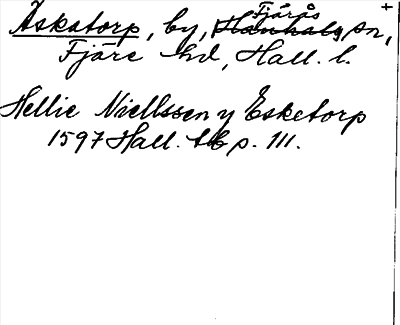 Äskatorp, by, Fjärås sn,
Fjäre hd, Hall. l.
Hellie Niellssen y Esketorp
1597 Hall. tlb p. 111.